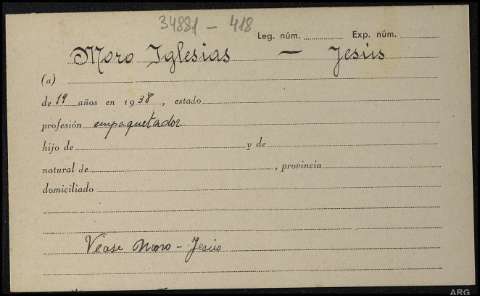 34881 - 418
Leg. núm. Exp. núm.
Moro Iglesias - Jesús
(a)
de 19 años en 1938, estado
profesión empaquetador
hijo de y de
natural de , provincia
domiciliado
Véase Moro - Jesús
ARG